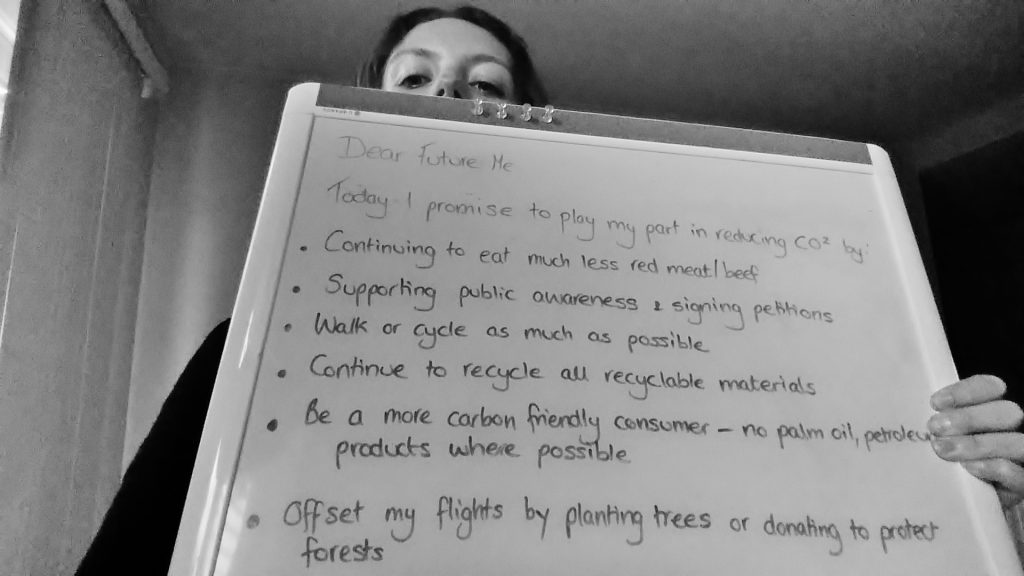 Dear Future Me
Today I promise to play my part in reducing CO² by:
• Continuing to eat much less red meat/beef
• Supporting public awareness & signing petitions
• Walk or cycle as much as possible
• Continue to recycle all recyclable materials
• Be a more carbon friendly consumer – no palm oil, petroleu
products where possible
• Offset my flights by planting trees or donating to protect
forests